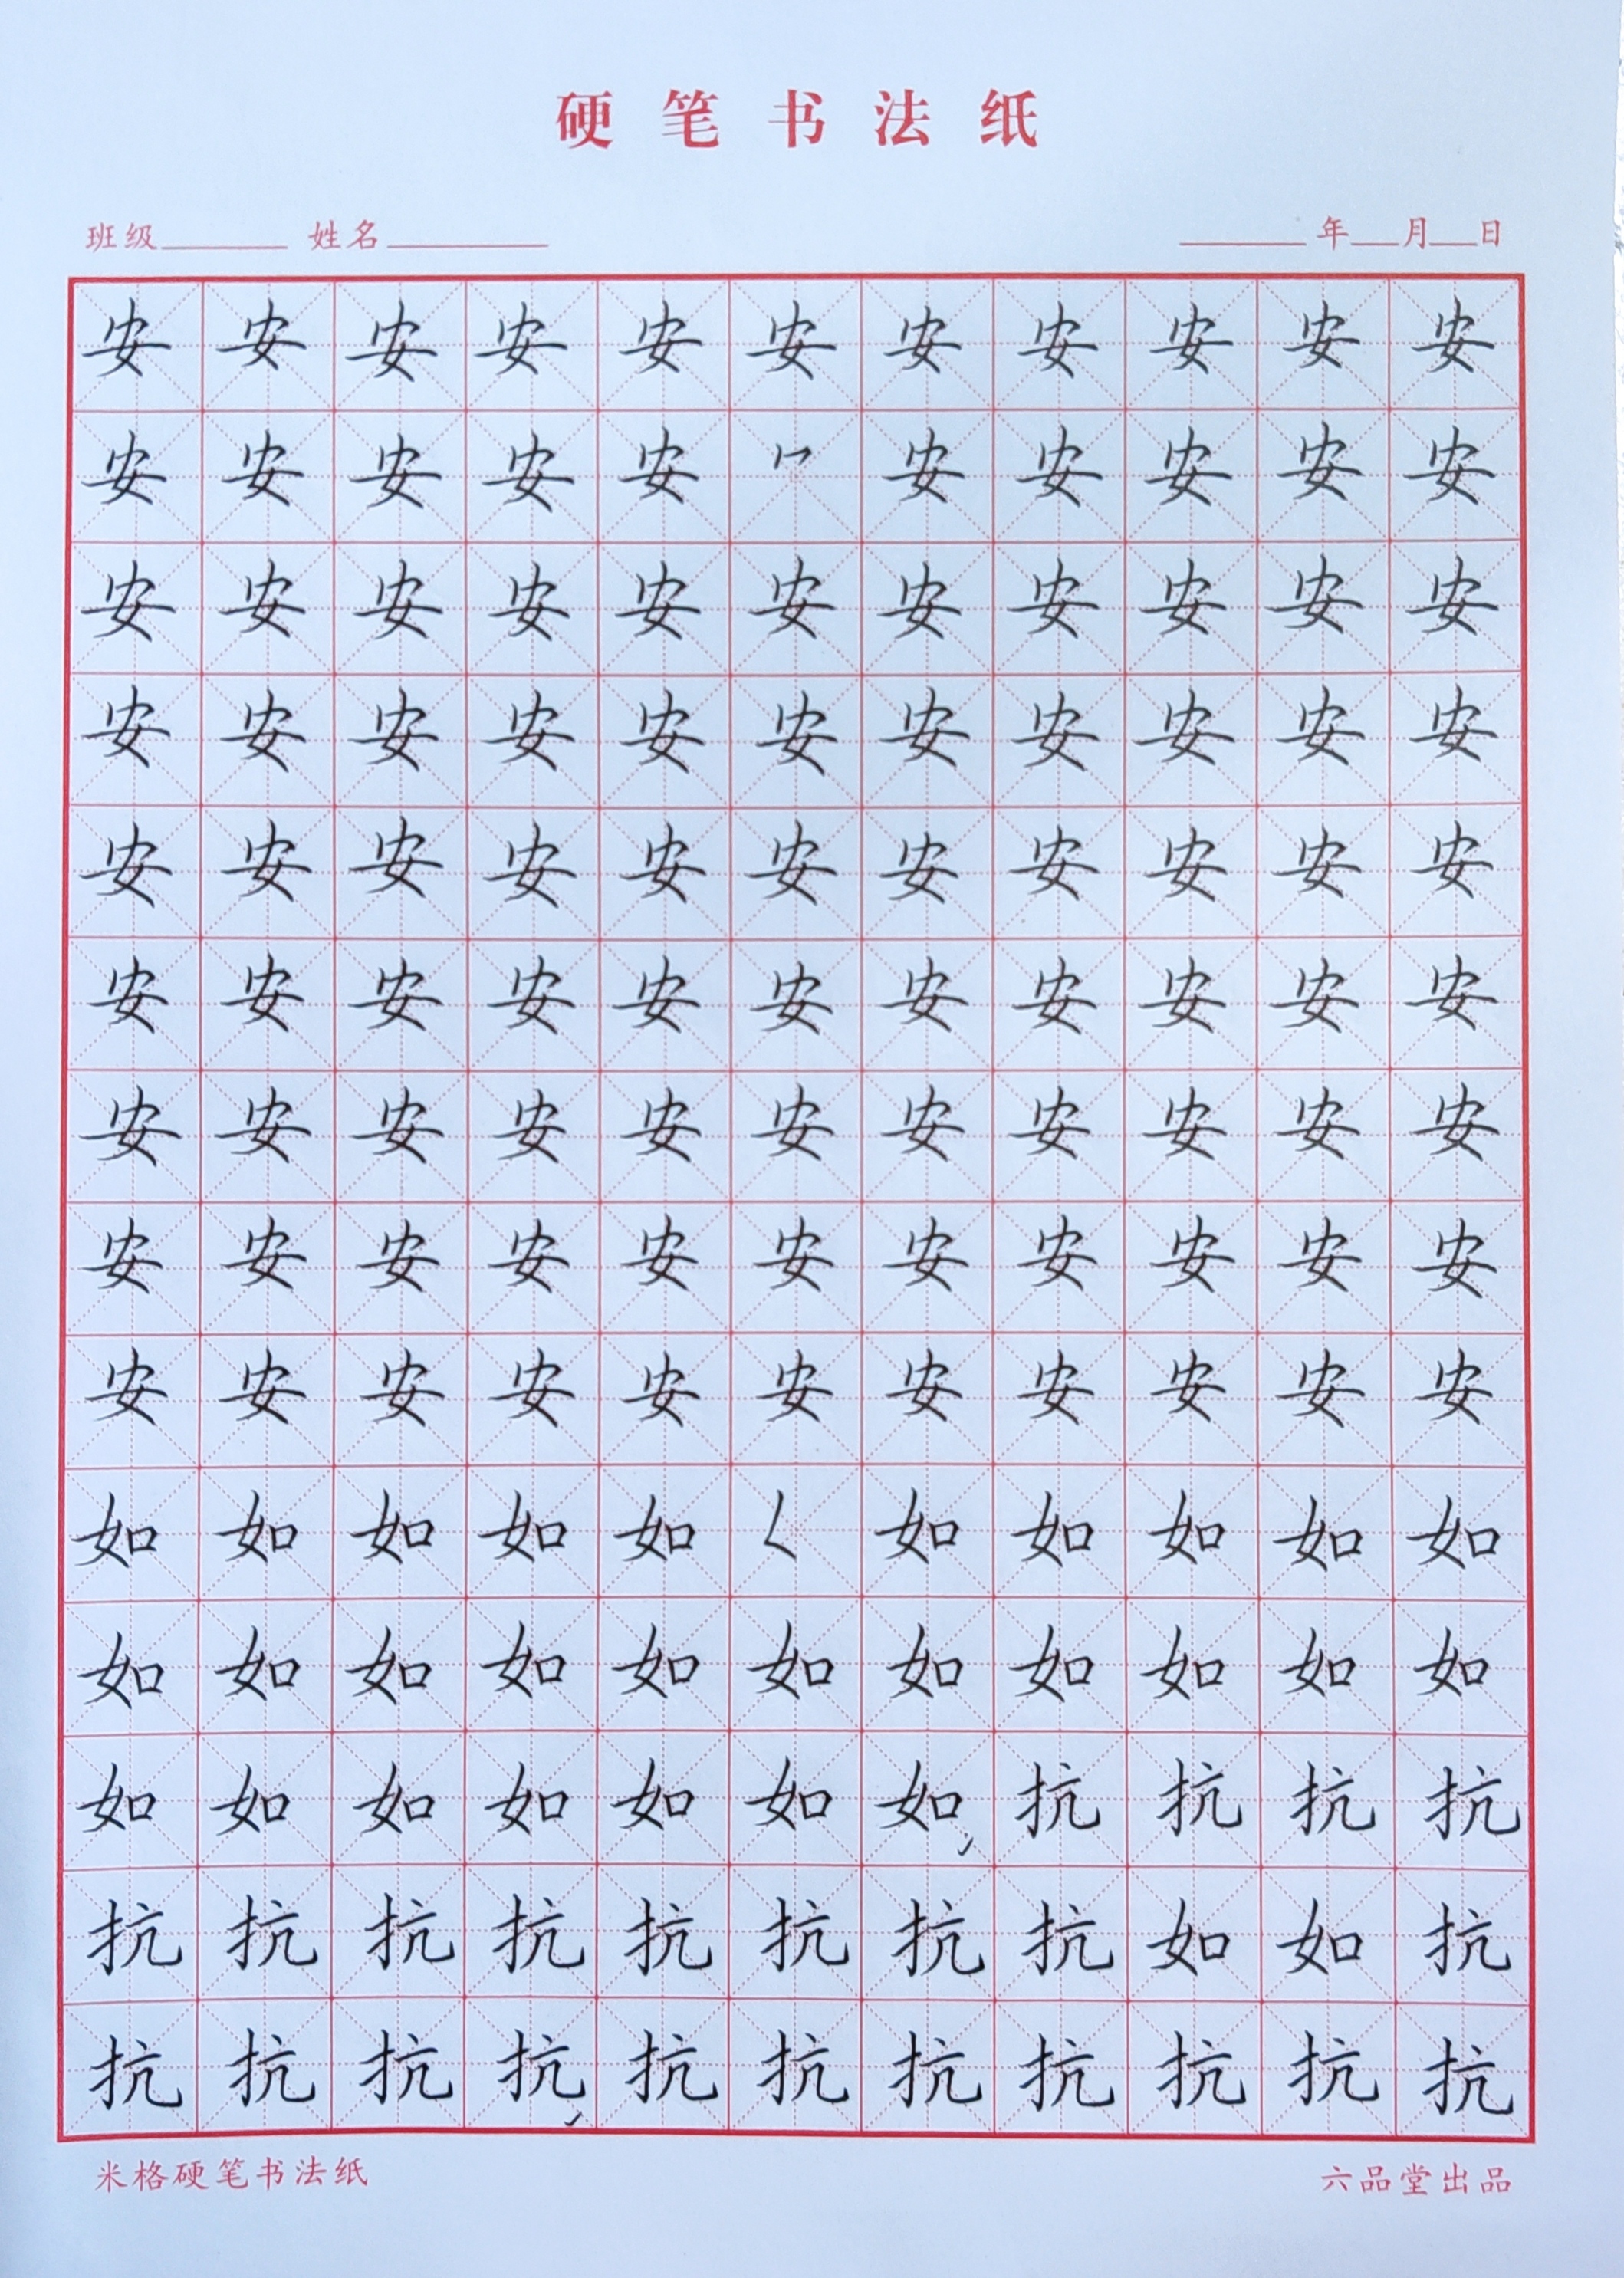 硬笔书法纸
班级 姓名 年 月 日
安安安安安安安安安安安
安安安安安安安安安安
安安安安安安安安安安安
安安安安安安安安安安安
安安安安安安安安安安安
安安安安安安安安安安安
安安安安安安安安安安安
安安安安安安安安安安安
安安安安安安安安安安安
如如如如如如如如如如
如如如如如如如如如如如
如如如如如如如抗抗抗抗
抗抗抗抗抗抗抗抗如如抗
抗抗抗抗抗抗抗抗抗抗抗
米格硬笔书法纸 六品堂出品